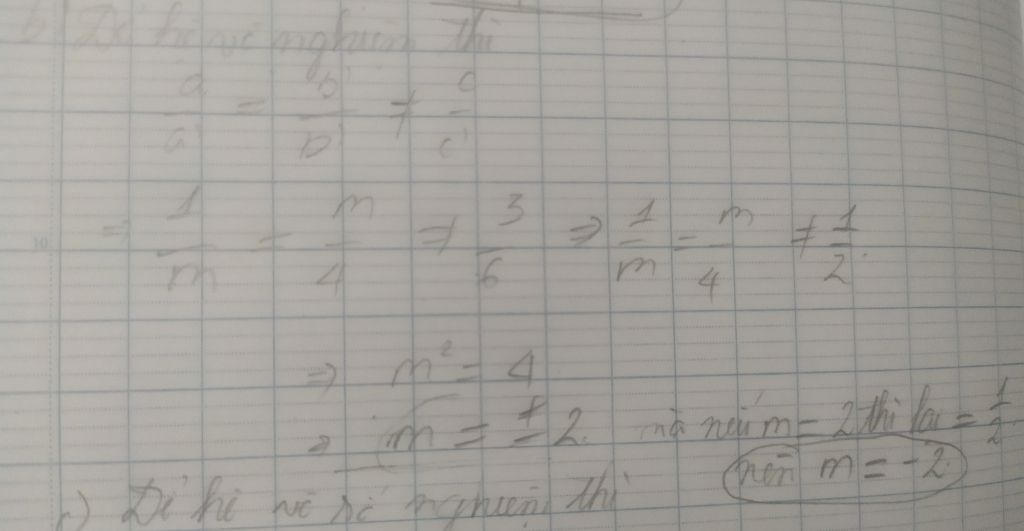 b) Để hệ vô nghiệm thì
a/a' = b/b' ≠ c/c'
⇒ 1/m = m/4 ≠ 3/6 ⇒ 1/m = m/4 ≠ 1/2
⇒ m² = 4
⇒ m = ±2. mà nếu m = 2 thì lại = 1/2
nên m = -2
c) Để hệ vô số nghiệm thì